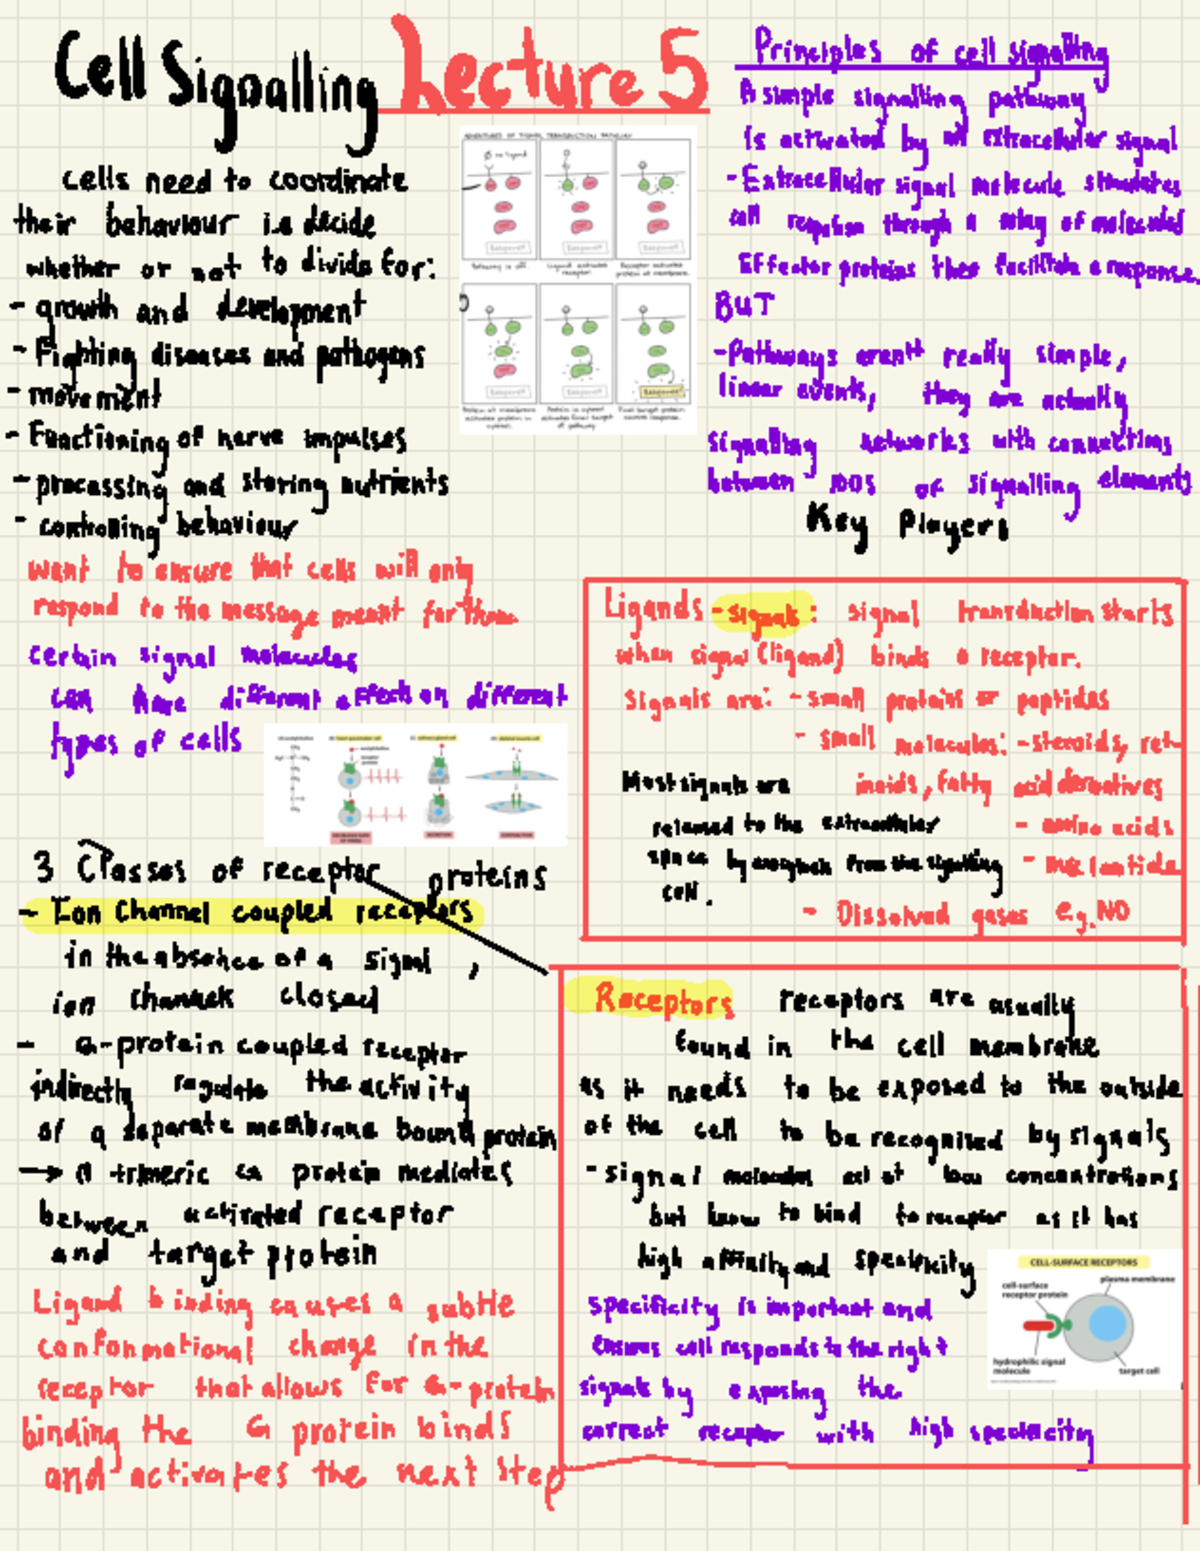 Cell Signalling Lecture 5
cells need to coordinate
their behaviour i.e decide
whether or not to divide for:
- growth and development
- Fighting diseases and pathogens
- movement
- Functioning of nerve impulses
- processing and storing nutrients
- controlling behaviour
want to ensure that cells will only
respond to the message meant for them
certain signal molecules
can have different effect on different
types of cells
3 Classes of receptor proteins
- Ion Channel coupled receptors
in the absence of a signal,
ion channels closed
- G-protein coupled receptor
indirectly regulate the activity
of a separate membrane bound protein
→ A trimeric G protein mediates
between activated receptor
and target protein
Ligand binding causes a subtle
conformational change in the
receptor that allows for G-protein
binding the G protein binds
and activates the next step
ADVENTURES OF SIGNAL TRANSDUCTION PATHWAY
no ligand
Response!
Response!
Response!
Pathway is off.
Ligand activates
receptor.
Receptor activates
protein at membrane.
Response!
Response!
Response!
Protein at membrane
activates protein in
cytosol.
Protein in cytosol
activates final target
of pathway.
Final target protein
causes response.
Principles of cell signalling
A simple signalling pathway
is activated by an extracellular signal
- Extracellular signal molecule stimulates
cell response through a relay of molecules
Effector proteins then facilitate a response.
BUT
- Pathways arent really simple,
linear events, they are actually
signalling networks with connections
between 100s of signalling elements
Key Players
Ligands - signals: signal transduction starts
when signal (ligand) binds a receptor.
signals are: - small proteins or peptides
- small molecules: - steroids, ret-
inoids, fatty acid derivatives
- amino acids
- nucleotide
- Dissolved gases e.g. NO
Most signals are
released to the extracellular
space by exocytosis from the signalling
cell.
Receptors receptors are usually
found in the cell membrane
as it needs to be exposed to the outside
of the cell to be recognised by signals
- signal molecules act at low concentrations
but know to bind to receptor as it has
high affinity and specificity
specificity is important and
ensures cell responds to the right
signals by exposing the
correct receptor with high specificity
CELL-SURFACE RECEPTORS
cell-surface
receptor protein
plasma membrane
hydrophilic signal
molecule
target cell